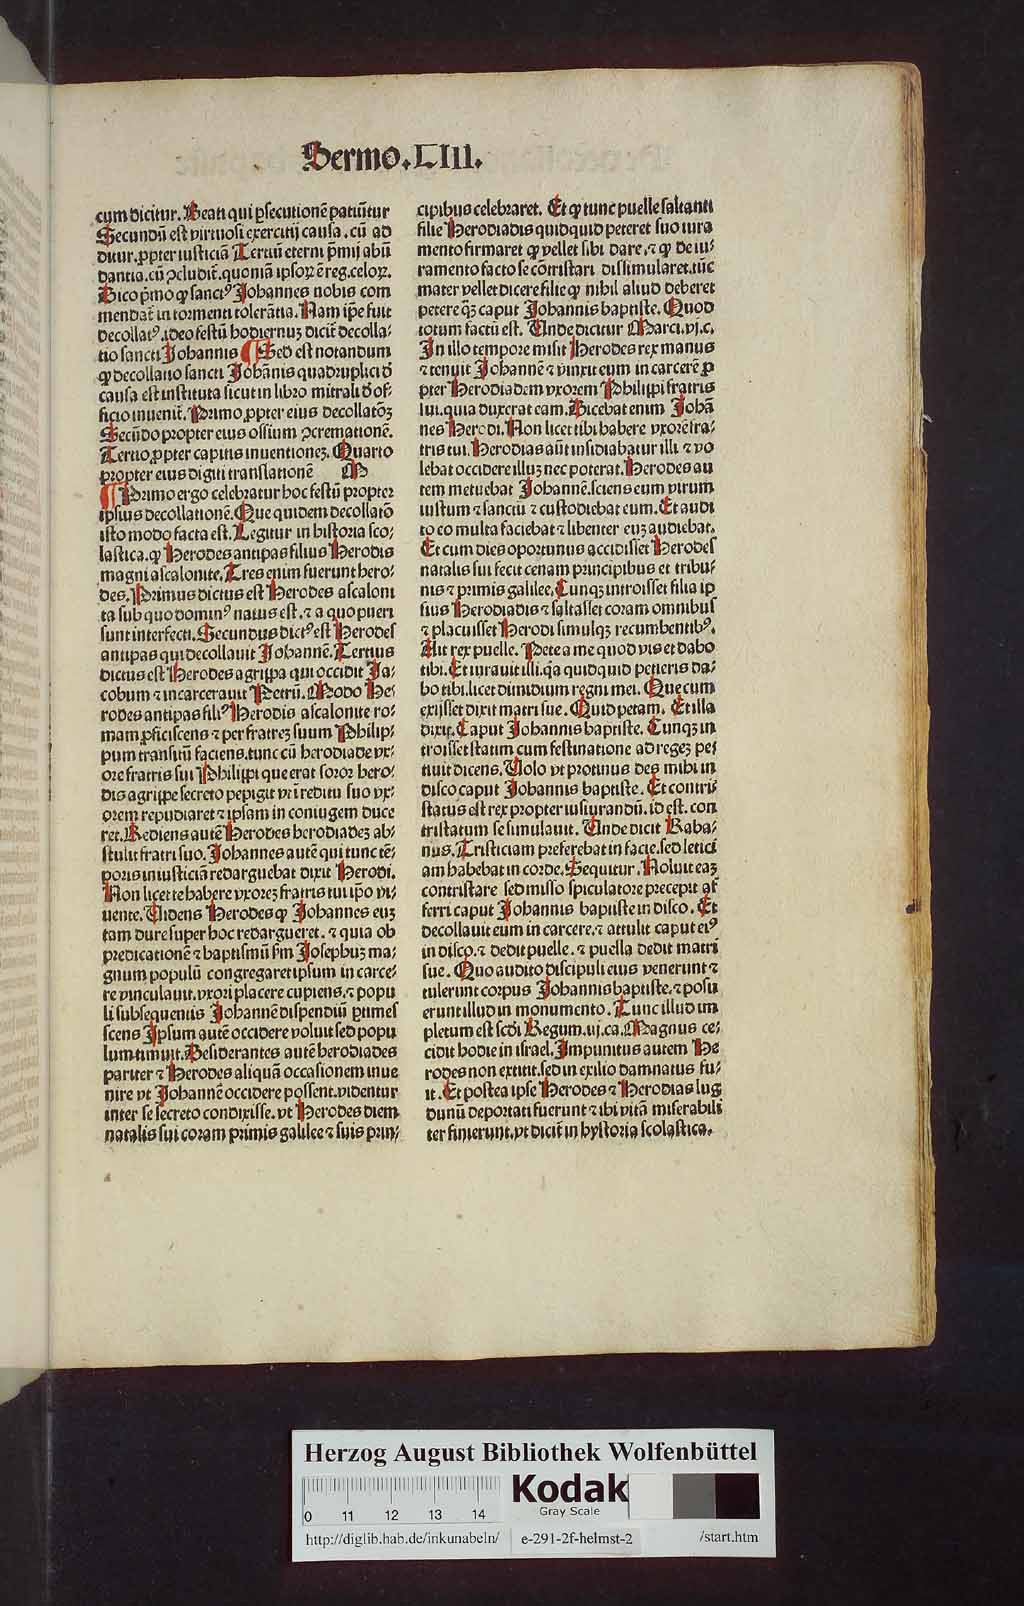 Sermo.LIII.
cum dicitur. Beati qui ꝑsecutionē patiūtur
Secundū est virtuosi exercitij causa. cū ad
ditur. ꝓpter iusticiā Tertiū eterni p̄mij abū
dantia. cū ↄcludit̄. quoniā ipsoꝝ ē reg. celoꝝ.
Dico p̄mo ꝙ sanctꝰ Johannes nobis com
mendat̄ in tormenti tolerātia. Nam ip̄e fuit
decollatꝰ. ideo festū hodiernuꝫ dicit̄ decolla⸗
tio sancti Johannis ¶ Sed est notandum
ꝙ decollatio sancti Johānis quadruplici ď
causa est instituta sicut in libro mitrali ď of⸗
ficio inuenit̄. Primo ꝓpter eius decollatōꝫ
Secūdo propter eius ossium ↄcremationē.
Tertio ꝓpter capitis inuentioneꝫ. Quarto
propter eius digiti translationē P
¶ Primo ergo celebratur hoc festū propter
ipsius decollationē. Que quidem decollatō
isto modo facta est. Legitur in historia sco⸗
lastica. ꝙ Herodes antipas filius Herodis
magni ascalonite. Tres enim fuerunt hero⸗
des. Primus dictus est Herodes ascaloni
ta sub quo dominꝰ natus est. ⁊ a quo pueri
sunt interfecti. Secundus dictꝰ est Herodes
antipas qui decollauit Johannē. Tertius
dictus est Herodes agrippa qui occidit Ja⸗
cobum ⁊ incarcerauit Petrū. Modo He⸗
rodes antipas filiꝰ Herodis ascalonite ro⸗
mam ꝓficiscens ⁊ per fratreꝫ suum Philip⸗
pum transitū faciens. tunc cū herodiade vx⸗
ore fratris sui Philippi que erat soror hero⸗
dis agrippe secreto pepigit vt ī reditu suo vx⸗
orem repudiaret ⁊ ipsam in coniugem duce
ret. Rediens autē Herodes herodiadeꝫ ab⸗
stulit fratri suo. Johannes autē qui tunc tē⸗
poris iniusticiā redarguebat dixit Herodi.
Non licet te habere vxoreꝫ fratris tui ip̄o vi⸗
uente. Uidens Herodes ꝙ Johannes euꝫ
tam dure super hoc redargueret. ⁊ quia ob
predicationē ⁊ baptismū ẜm Josephuꝫ ma⸗
gnum populū congregaret ipsum in carce⸗
re vinculauit. vxori placere cupiens. ⁊ popu
li subsequentis Johannē dispendiū ꝑtimes
scens Ipsum autē occidere voluit sed popu
lum timuit. Desiderantes autē herodiades
pariter ⁊ Herodes aliquā occasionem inue
nire vt Johannē occidere possent. videntur
inter se secreto condixisse. vt Herodes diem
natalis sui coram primis galilee ⁊ suis prin⸗
cipibus celebraret. Et ꝙ tunc puelle saltanti
filie Herodiadis quidquid peteret suo iura
mento firmaret ꝙ vellet sibi dare. ⁊ ꝙ de iu⸗
ramento facto se cōtristari dissimularet. tūc
mater vellet dicere filie ꝙ nihil aliud deberet
petere qꝫ caput Johannis baptiste. Quod
totum factū est. Unde dicitur Marci. vj. c.
In illo tempore misit Herodes rex manus
⁊ tenuit Johannē ⁊ vinxit eum in carcere ꝓ
pter Herodiadem vxorem Philippi fratris
sui. quia duxerat eam. Dicebat enim Johā
nes Herodi. Non licet tibi habere vxorē fra⸗
tris tui. Herodias aūt insidiabatur illi ⁊ vo
lebat occidere illuꝫ nec poterat. Herodes au
tem metuebat Johannē. sciens eum virum
iustum ⁊ sanctū ⁊ custodiebat eum. Et audi
to eo multa faciebat ⁊ libenter euꝫ audiebat.
Et cum dies oportunus accidisset Herodes
natalis sui fecit cenam principibus et tribu⸗
nis ⁊ primis galilee. Cunqꝫ introisset filia ip
sius Herodiadis ⁊ saltasset coram omnibus
⁊ placuisset Herodi simulqꝫ recumbentibꝰ.
Ait rex puelle. Pete a me quod vis et dabo
tibi. Et iurauit illi. q̄a quidquid petieris da⸗
bo tibi. licet dimidium regni mei. Que cum
exijsset dixit matri sue. Quid petam. Et illa
dixit. Caput Johannis baptiste. Cunqꝫ in
troisset statim cum festinatione ad regeꝫ pe⸗
tiuit dicens. Uolo vt protinus des mihi in
disco caput Johannis baptiste. Et contri⸗
status est rex propter iusiurandū. id est. con
tristatum se simulauit. Unde dicit Raba⸗
nus. Tristiciam preferebat in facie. sed letici
am habebat in corde. Sequitur. Noluit eaꝫ
contristare sed misso spiculatore precepit af
ferri caput Johannis baptiste in disco. Et
decollauit eum in carcere. ⁊ attulit caput eiꝰ
in disco. ⁊ dedit puelle. ⁊ puella dedit matri
sue. Quo audito discipuli eius venerunt ⁊
tulerunt corpus Johannis baptiste. ⁊ posu
erunt illud in monumento. Tunc illud im
pletum est scďi Regum. iij. ca. Magnus ce⸗
cidit hodie in israel. Impunitus autem He
rodes non extitit. sed in exilio damnatus fu⸗
it. Et postea ipse Herodes ⁊ Herodias lug
dunū deportati fuerunt ⁊ ibi vitā miserabili
ter finierunt. vt dicit̄ in hystoria scolastica.
Herzog August Bibliothek Wolfenbüttel
0 11 12 13 14
Kodak
Gray Scale
http://diglib.hab.de/inkunabeln/ e-291-2f-helmst-2 /start.htm